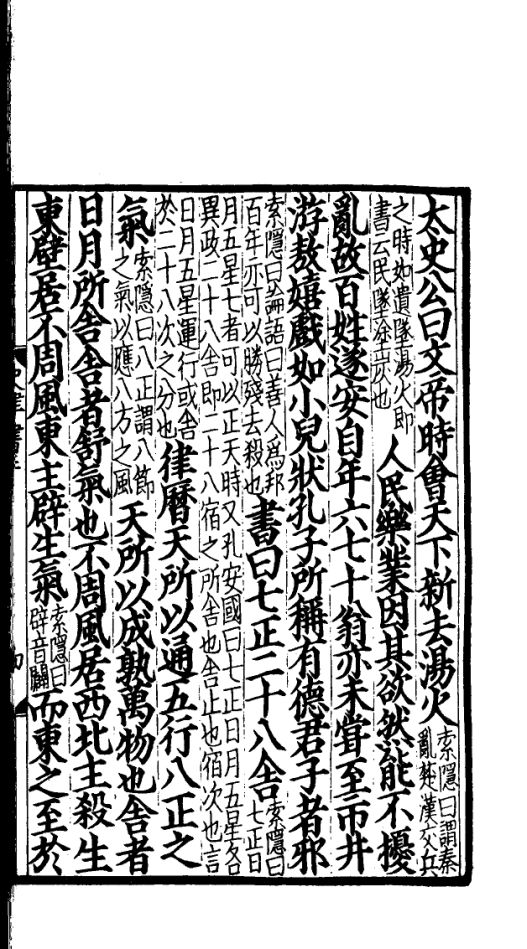 太史公曰文帝時會天下新去湯火索隱曰謂秦亂楚漢交兵
之時如遺墜湯火即書云民墜塗炭也人民樂業因其欲然能不擾
亂故百姓遂安自年六七十翁亦未甞至市井
游敖嬉戲如小兒狀孔子所稱有德君子者邪
索隱曰論語曰善人爲邦百年亦可以勝殘去殺也書曰七正二十八舍索隱曰七正日
月五星七者可以正天時又孔安國曰七正日月五星各異政二十八舍即二十八宿之所舍也舍止也宿次也言
日月五星運行或舍於二十八次之分也律曆天所以通五行八正之
氣索隱曰八正謂八節之氣以應八方之風天所以成孰萬物也舍者
日月所舍舍者舒氣也不周風居西北主殺生
東壁居不周風東主辟生氣索隱曰辟音闢而東之至於